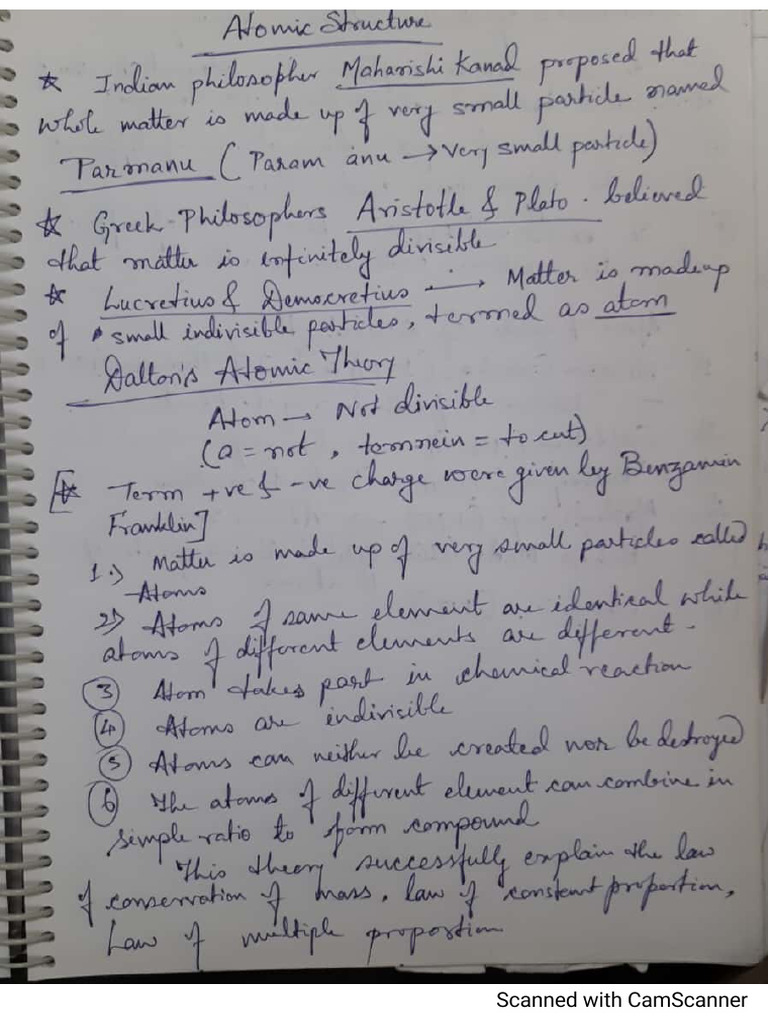 Atomic Structure
☆ Indian philosopher Maharishi Kanad proposed that
whole matter is made up of very small particle named
Parmanu (Param anu → Very small particle)
☆ Greek Philosophers Aristotle & Plato. believed
that matter is infinitely divisible
☆ Lucretius & Democretius → Matter is madeup
of small indivisible particles, termed as atom
Dalton's Atomic Theory
Atom → Not divisible
(a = not, tomnein = to cut)
[☆ Term +ve & -ve charge were given by Benzamin
Franklin]
1.) Matter is made up of very small particles called
Atoms
2) Atoms of same element are identical while
atoms of different elements are different.
3 Atom takes part in chemical reaction
4 Atoms are indivisible
5 Atoms can neither be created nor be destroyed
6 The atoms of different element can combine in
simple ratio to form compound
This theory successfully explain the law
of conservation of mass, law of constant proportion,
Law of multiple proportion
Scanned with CamScanner